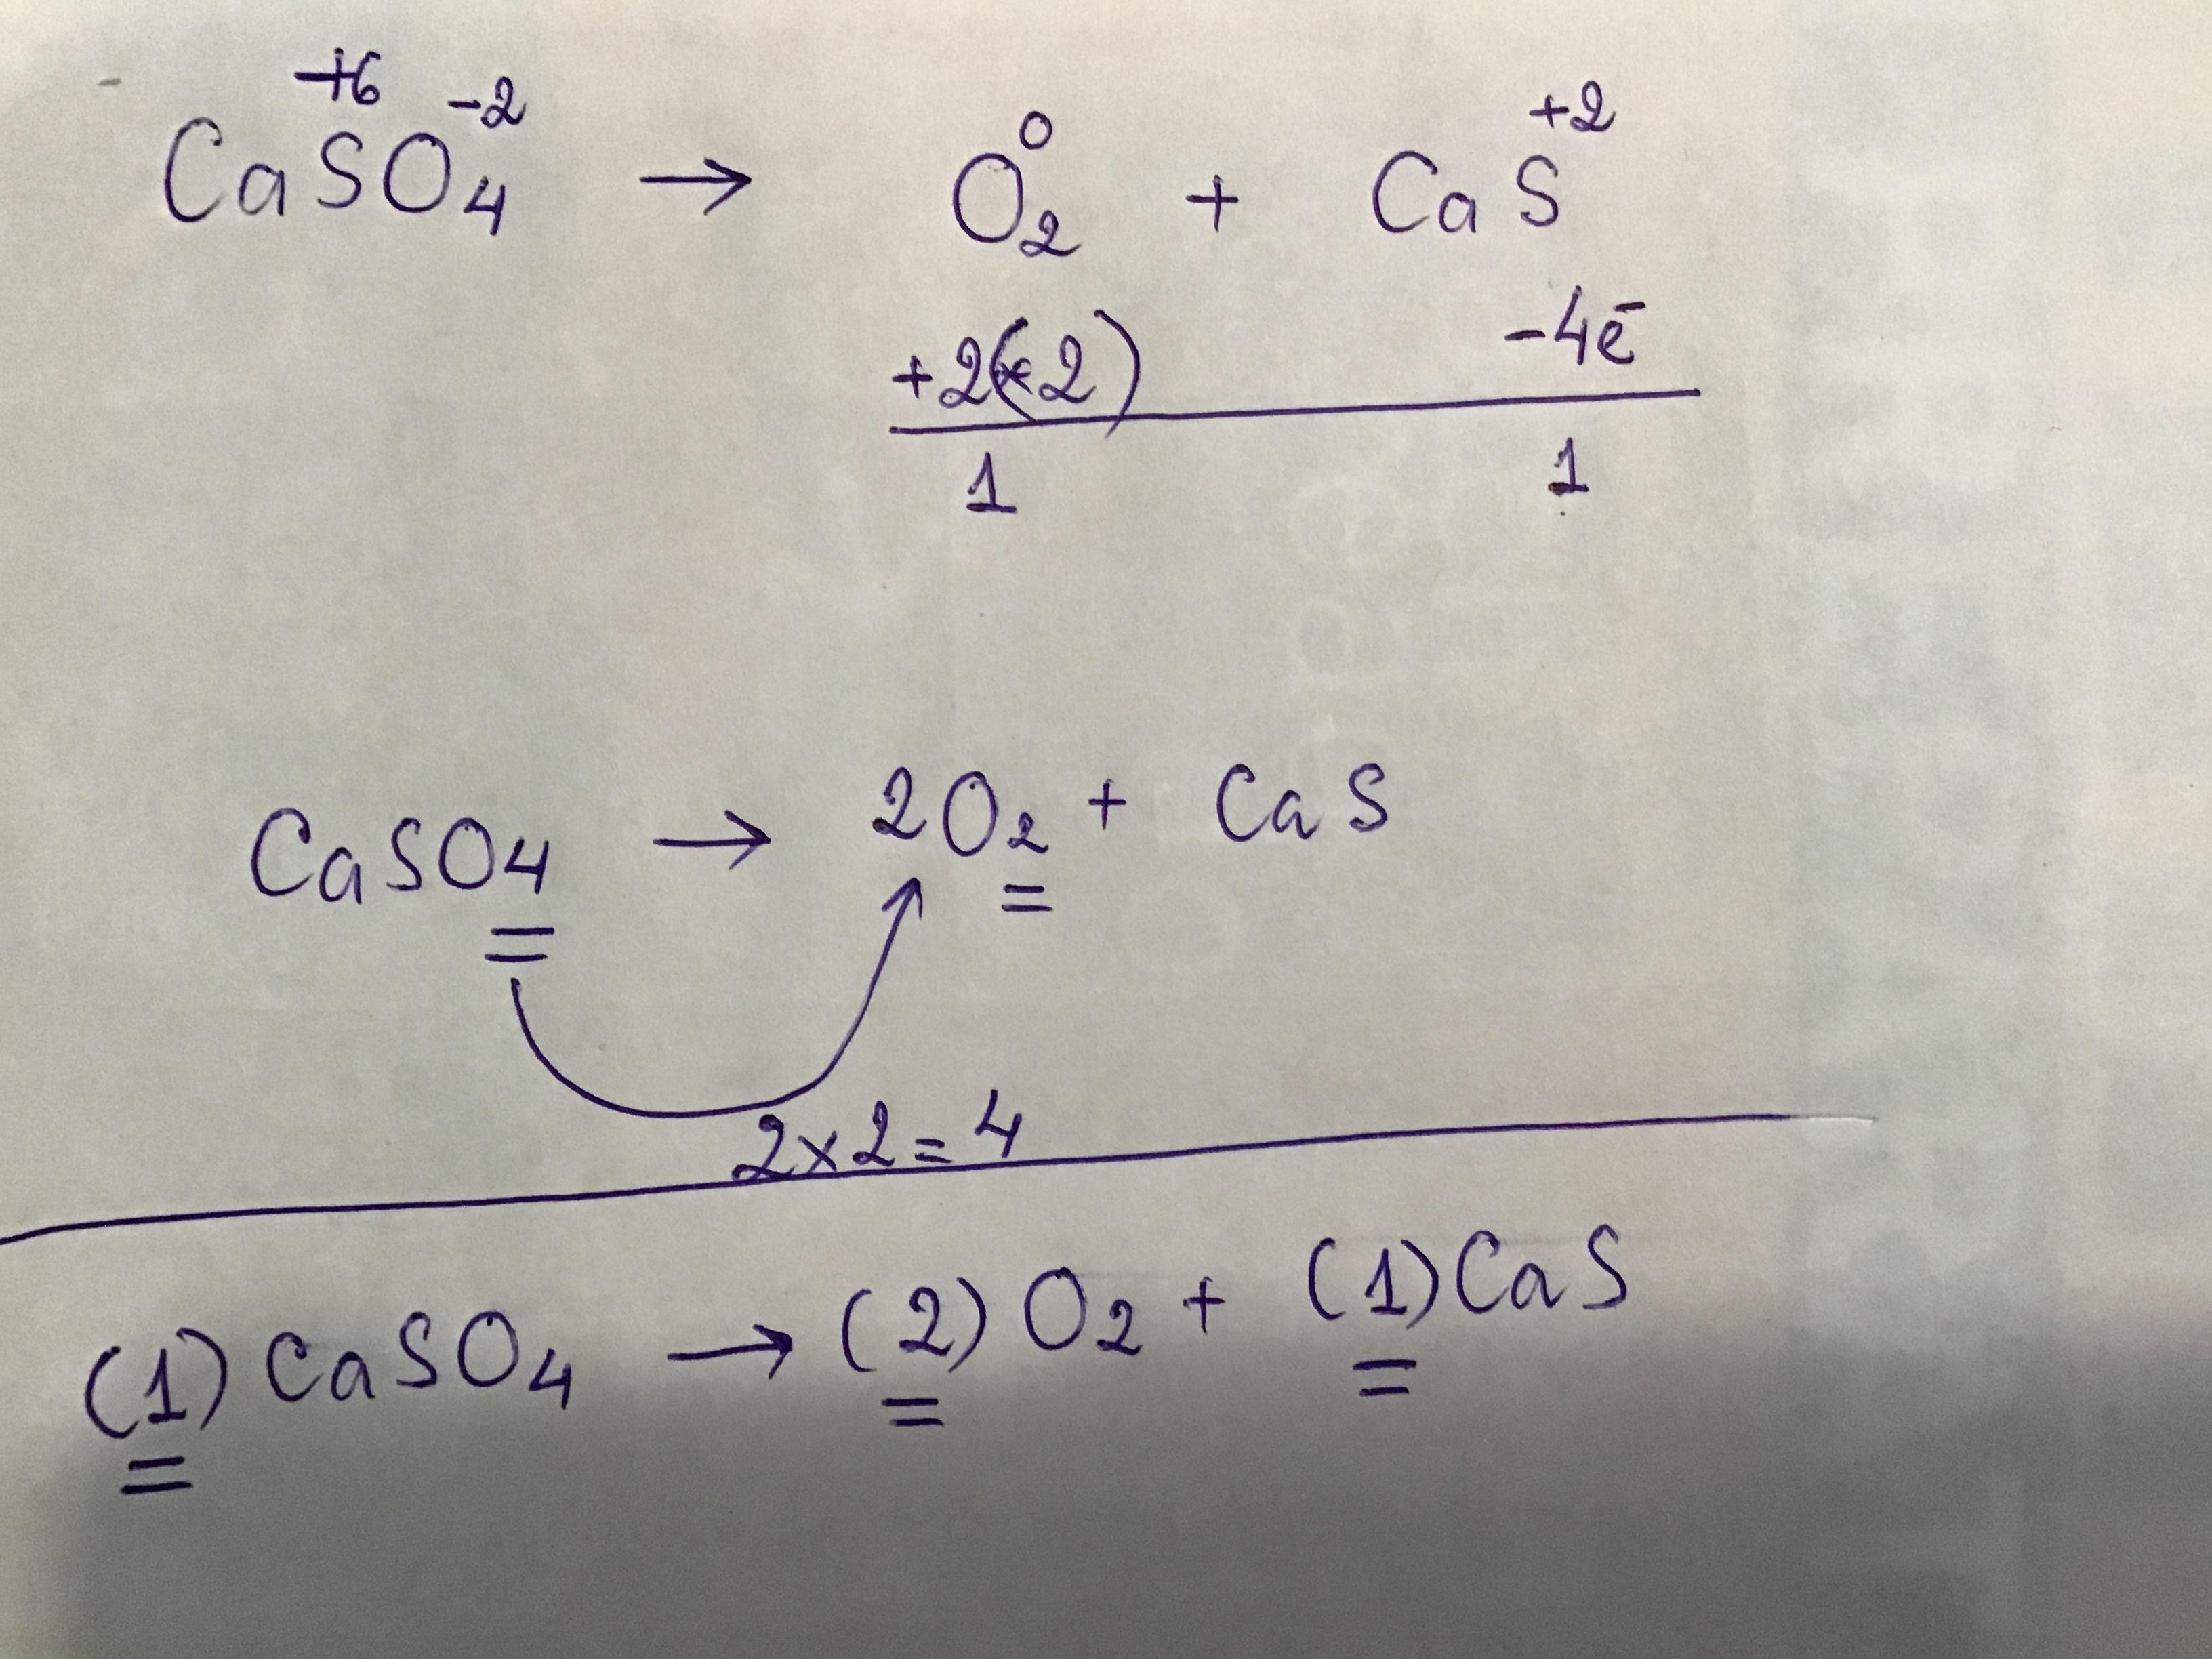 +6 -2 0 +2
CaSO4 → O2 + CaS
+2( 2) -4ē
1 1
CaSO4 → 2O2 + CaS
2×2=4
(1) CaSO4 → (2) O2 + (1) CaS